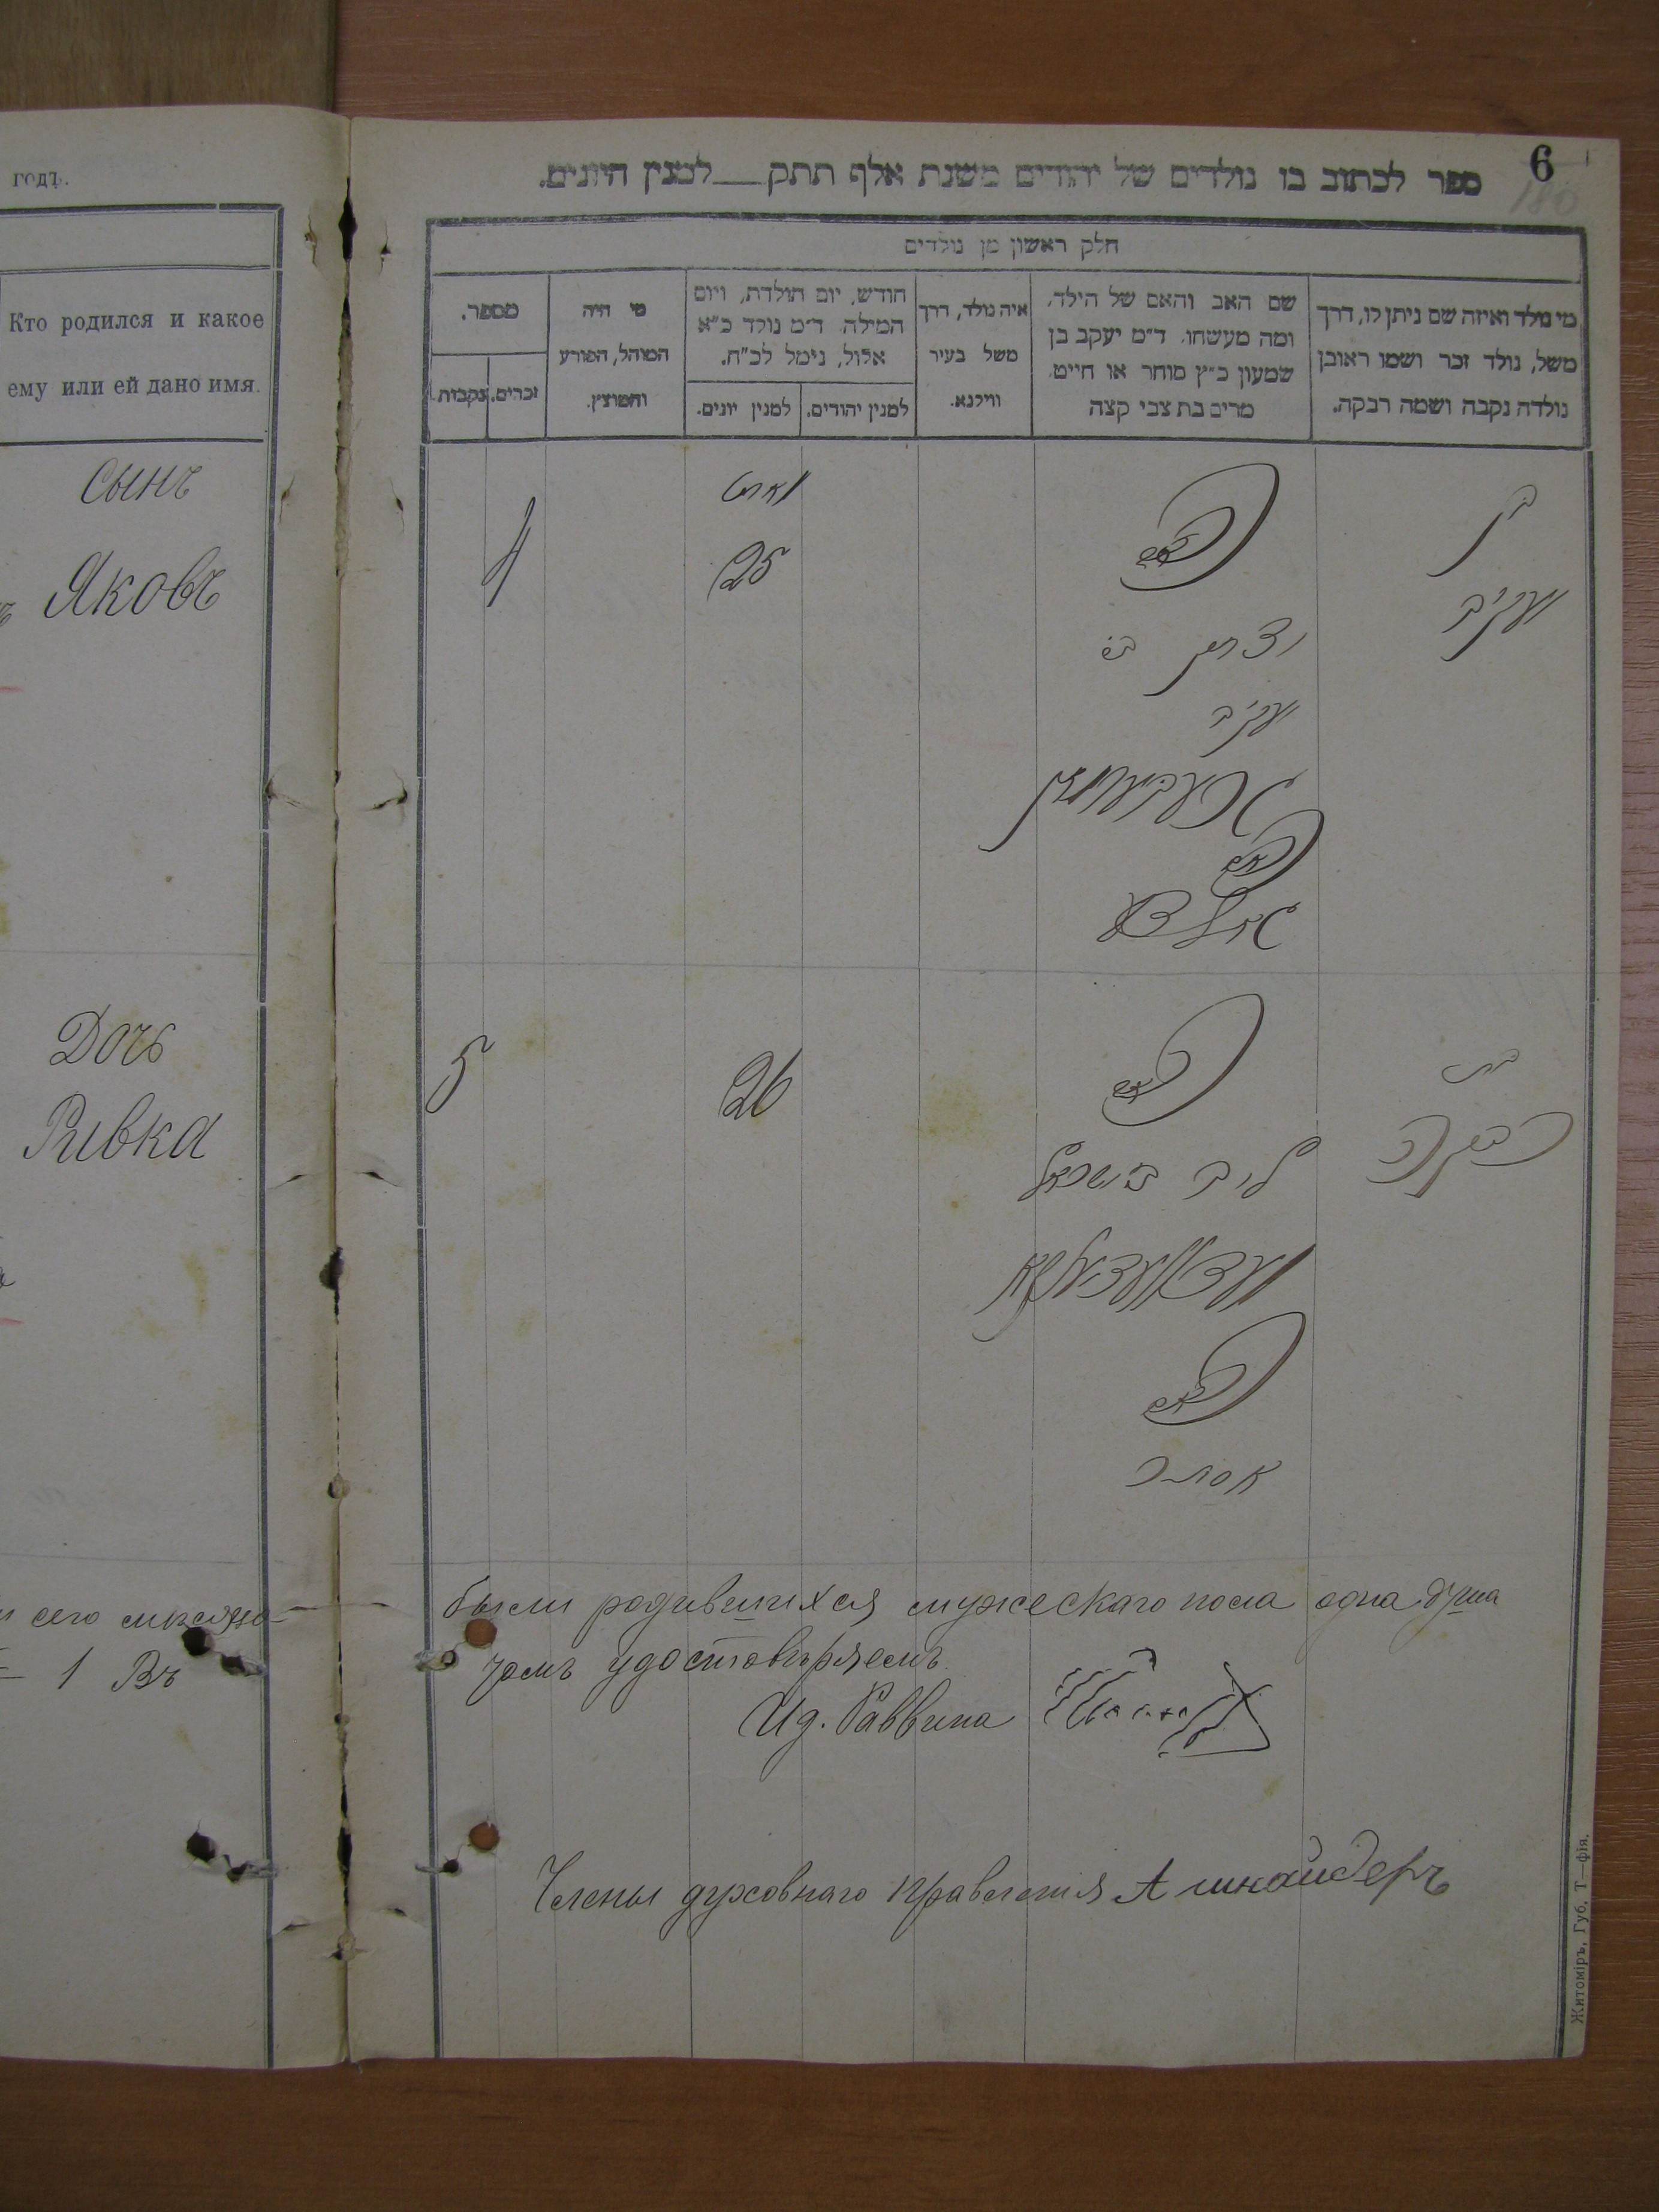 годъ.
Кто родился и какое
ему или ей дано имя.
Сынъ
Яковъ
Дочь
Ривка
сего месяца
1 Въ
6
180
ספר לכתוב בו נולדים של יהודים משנת אלף תתק__למנין היונים.
חלק ראשון מן נולדים
מי נולד ואיזה שם ניתן לו, דרך
משל, נולד זכר ושמו ראובן
נולדה נקבה ושמה רבקה.
שם האב והאם של הילד,
ומה מעשהו. ד״מ יעקב בן
שמעון כ״ץ סוחר או חייט
מרים בת צבי קצה
איה נולד, דרך
משל בעיר
ווילנא.
חודש, יום תולדת, ויום
המילה. ד״מ נולד כ״א
אלול, נימל לכ״ח.
למנין יהודים.
למנין יונים.
מי היה
המוהל, הפורע
והמוצץ.
מספר.
זכרים.
נקבות.
בן
יעקב
25
האב
יעקב
האם
גאלדע
בת
רבקה
5
26
האב
ליב ישראל
האם
אסתר
были родившихся мужескаго пола одна душа
чомъ удостовѣряемъ
Ид. Раввина
Члены духовнаго правления А шнайдеръ
Житоміръ, Губ. Т—фія.